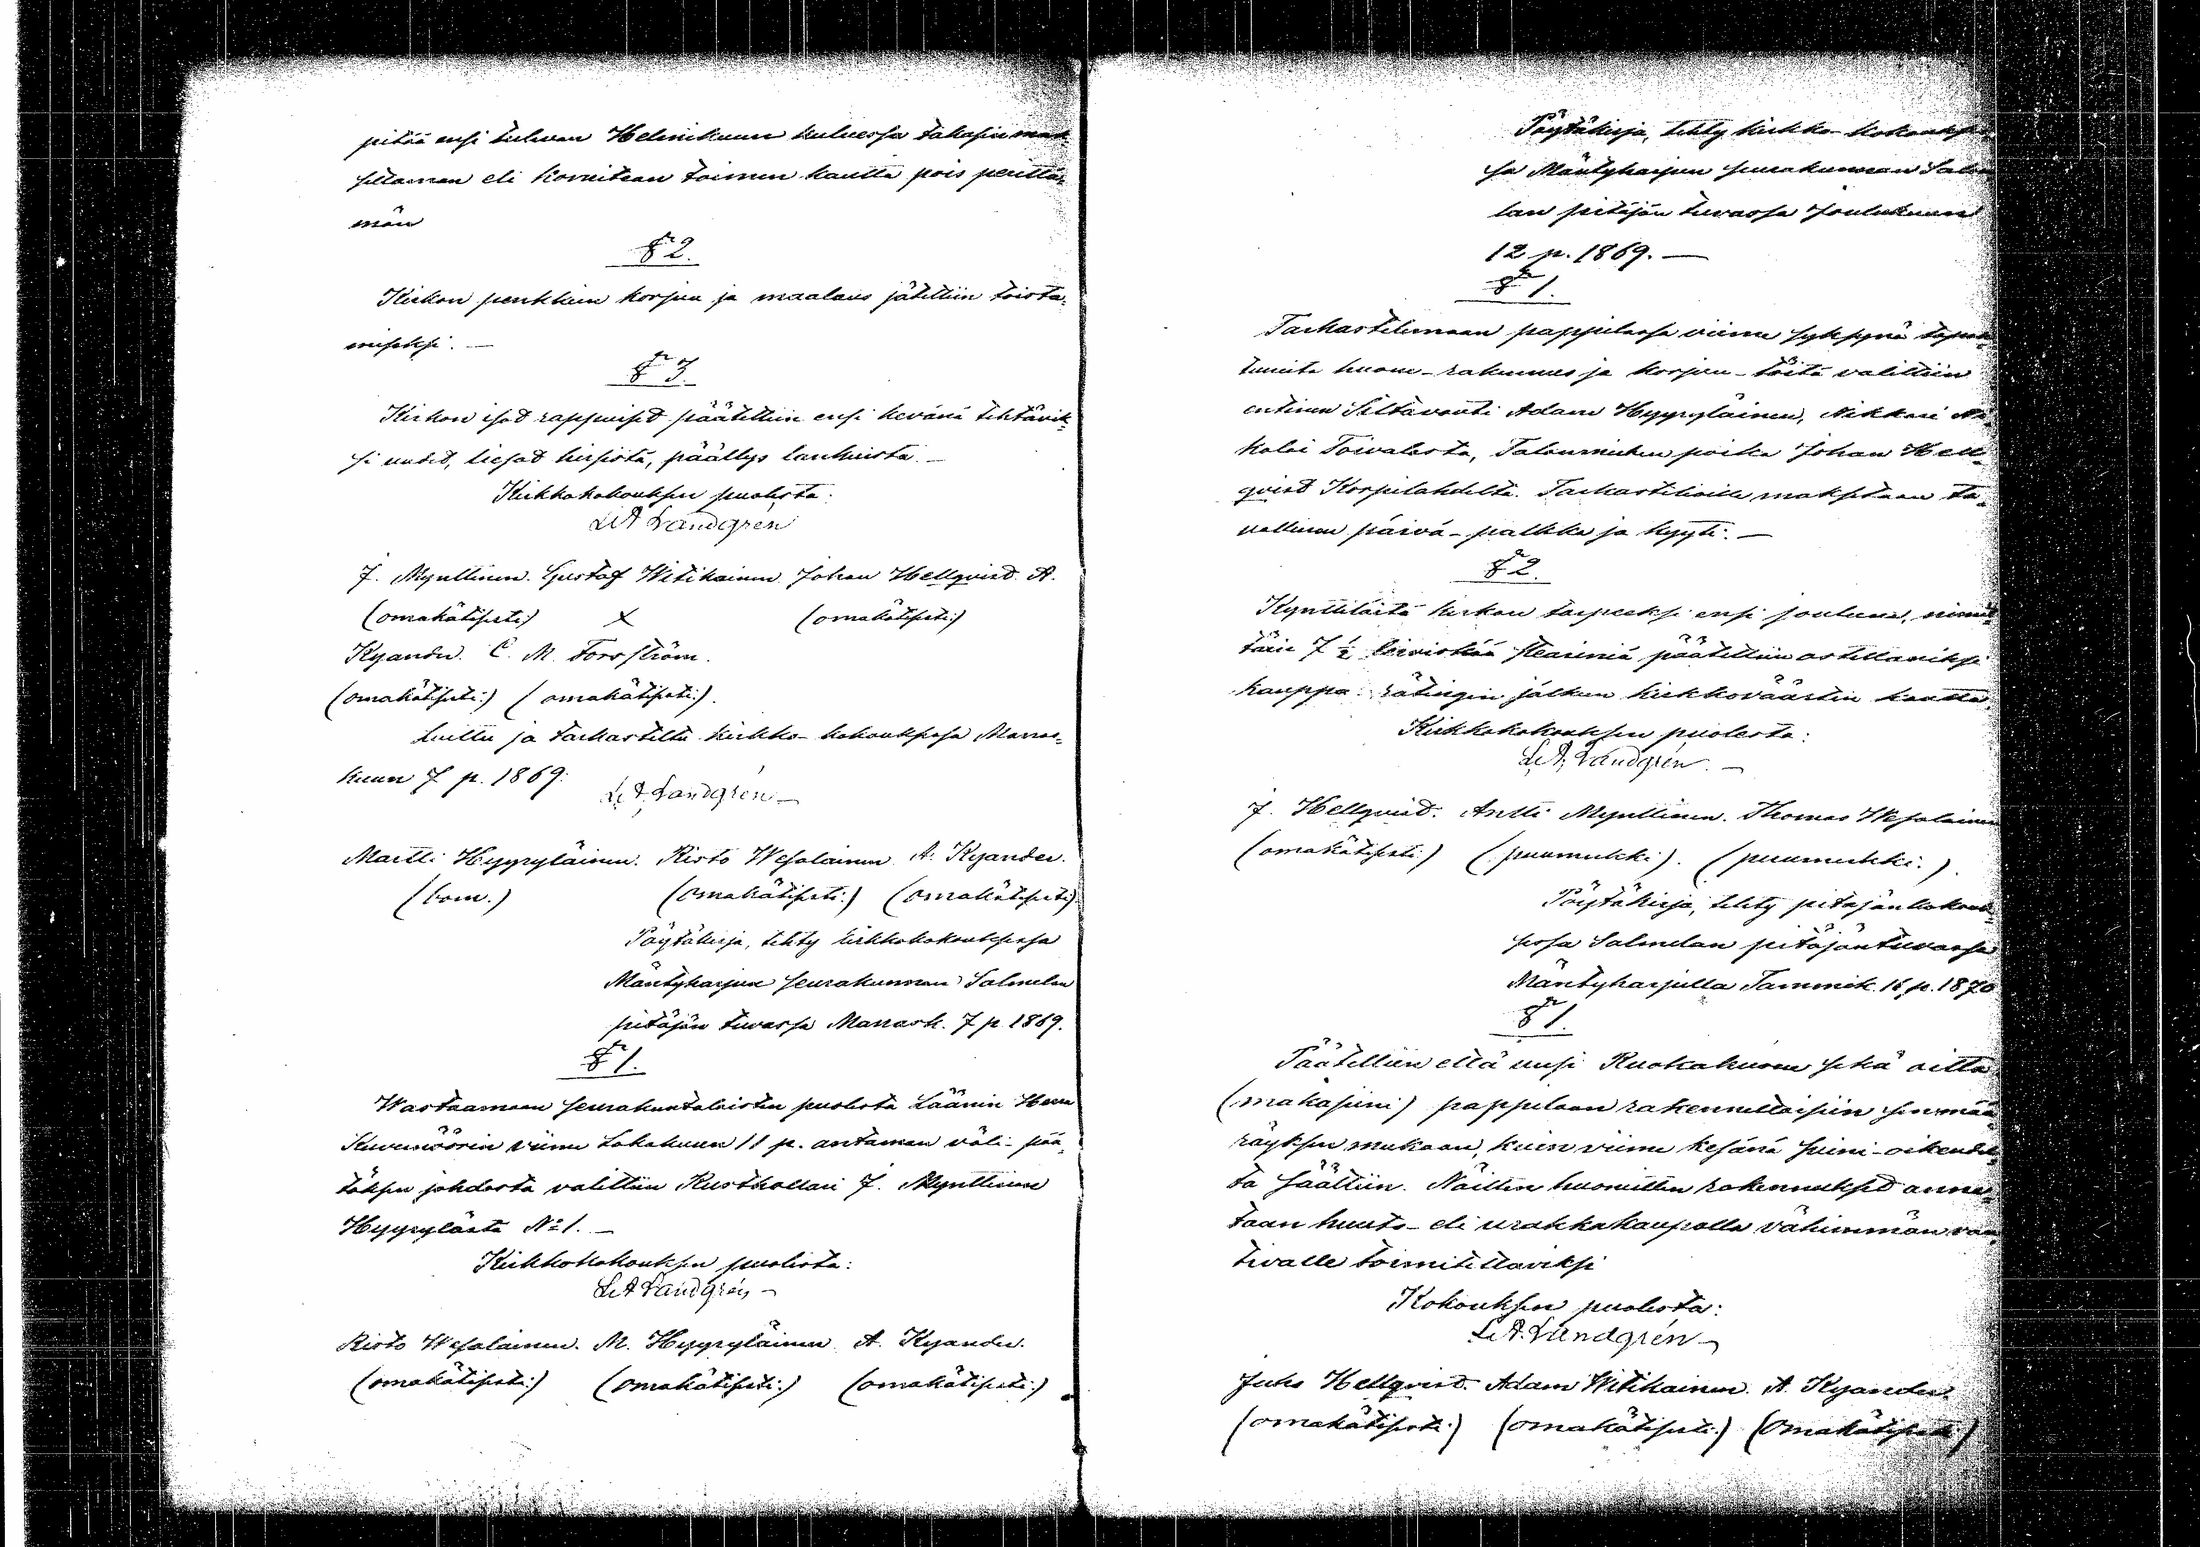 pitää ensi tulevan Helmikuun kuluessa takasin mak-
settaman eli komitean toimen kautta pois perittä-
män
§ 2.
Kirkon penkkein korjuu ja maalaus jätettiin toista-
miseksi. —
§ 3.
Kirkon isot rappuiset päätettiin ensi kevänä tehtävik-
si uudet, liesat hirsistä, päällys lankuista. —
Kirkkokokouksen puolesta:
L A Landgrén
J. Mynttinen. Gustaf Witikainen Johan Hellqvist. A.
(omakätisesti) X (omakätisesti)
Kyander. C. M. Forsström.
(omakätisesti:) (omakätisesti:).
Luettu ja tarkastettu kirkko-kokouksessa Marras-
kuun 7 p. 1869:
L. A. Landgrén —
Martti Hyyryläinen. Risto Wesalainen A. Kyander.
(bom.) (omakätisesti:) (omakätisesti)
Pöytäkirja, tehty kirkkokokouksessa
Mäntyharjun seurakunnan Salmelan
pitäjän tuvassa Marrask. 7 p. 1869.
§ 1.
Wastaamaan seurakuntalaisten puolesta Läänin Herra
Kuvernöörin viime Lokakuun 11 p. antaman väli-pää-
töksen johdosta valittiin Rusthollari J. Mynttinen
Hyyrylästä No 1. —
Kirkkokokouksen puolesta:
L A Landgrén —
Risto Wesalainen. M. Hyyryläinen A. Kyander.
(omakätisesti:) (omakätisesti:) (omakätisesti:)
Pöytäkirja, tehty kirkko-kokoukses-
sa Mäntyharjun seurakunnan Salme-
lan pitäjän tuvassa Joulukuun
12 p. 1869. —
§ 1.
Tarkastelemaan pappilassa viime syksynä tapah-
tuneita huone-rakennus ja korjuu-töitä valittiin
entinen Siltavouti Adam Hyyryläinen, Nikkari Ni-
kolai Toivalasta, Talonmiehen poika Johan Hell-
qvist Korpilahdelta. Tarkastelioille maksetaan ta-
vallinen päivä-palkka ja kyyti. —
§ 2.
Kynttilöitä kirkon tarpeeksi ensi jouluna, nimit-
täin 7 ½ leiviskää steariniä päätettiin ostettaviksi
kauppa: rätingin jälkeen kirkkoväärtin kautta.
Kirkkokokouksen puolesta:
L. A. Landgrén. —
J. Hellqvist. Antti Mynttinen. Thomas Wesalainen
(omakätisesti:) (puumerkki). (puumerkki.)
Pöytäkirja, tehty pitäjänkokouk-
sessa Salmelan pitäjäntuvassa
Mäntyharjulla Tammik. 16 p. 1870
§ 1.
Päätettiin että uusi Ruokahuone sekä aitta
(makasiini) pappilaan rakennettaisiin sen mää-
räyksen mukaan, kuin viime kesänä syyni-oikeudel-
ta säättiin. Näitten huonetten rakennukset anne-
taan huuto- eli urakkakaupalla vähimmän vaa-
tivalle toimitettaviksi
Kokouksen puolesta:
L. A. Landgrén —
Juho Hellqvist. Adam Witikainen. A. Kyander.
(omakätisesti:) (omakätisesti:) (omakätisesti)